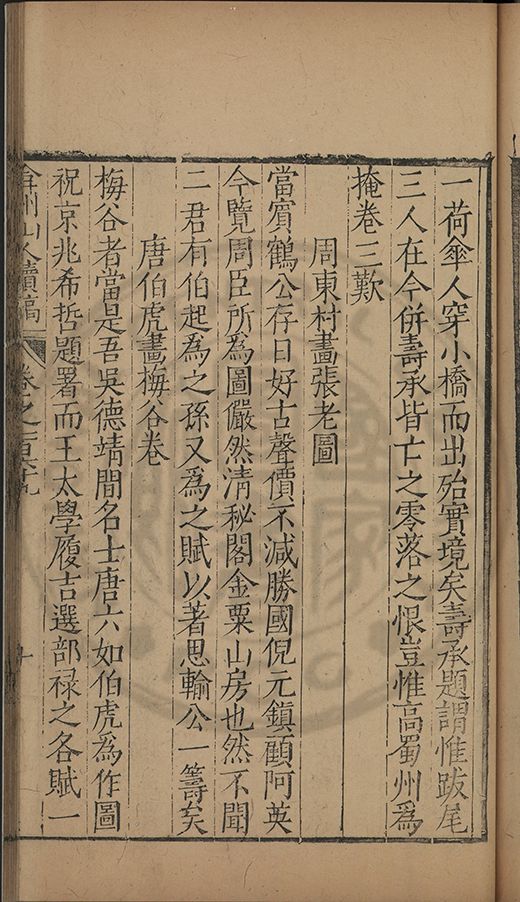 一荷傘人穿小橋而出殆實境矣壽承題謂惟跋尾
三人在今併壽承皆亡之零落之恨豈惟高蜀州爲
掩卷三歎
周東村畫張老圖
當賓鶴公存日好古聲價不減勝國倪元鎮顧阿英
今覽周臣所爲圖儼然清秘閣金粟山房也然不聞
二君有伯起爲之孫又爲之賦以著思輸公一籌矣
唐伯虎畫梅谷卷
梅谷者當是吾吳德靖間名士唐六如伯虎爲作圖
祝京兆希哲題署而王太學履吉選部祿之各賦一
弇州山人續稿 卷之一百六十九 十